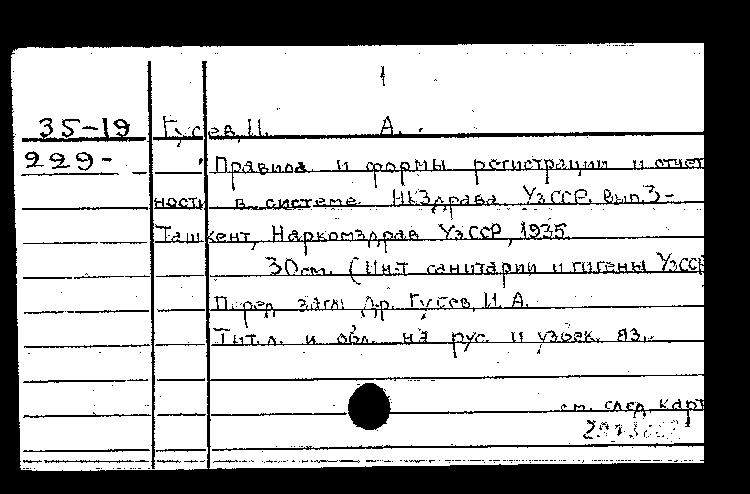 1
35-19 Гусев, И. А.
229- Правила и формы регистрации и отчет
ности в системе НКЗдрава УзССР. Вып. 3-
Ташкент, Наркомздрав УзССР, 1935.
30см. (Ин-т санитарии и гигены УзССР
Перед загл: Др. Гусев, И. А.
Тит. л. и обл. на рус. и узбек. яз.
см. след. карт